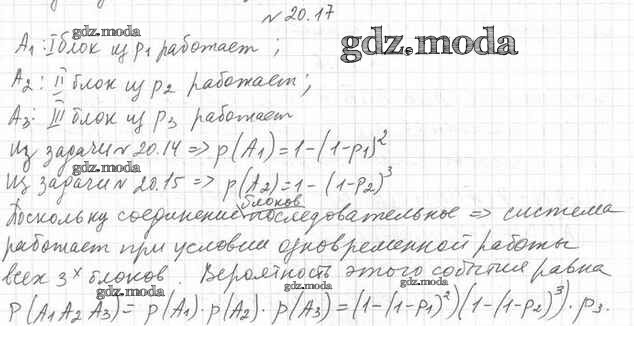 № 20.17
A₁: I блок из p₁ работает;
gdz.moda
gdz.moda
A₂: II блок из p₂ работает;
A₃: III блок из p₃ работает
gdz.moda
Из задачи № 20.14 => p(A₁) = 1-(1-p₁)²
gdz.moda
Из задачи № 20.15 => p(A₂) = 1-(1-p₂)³
Поскольку соединение блоков последовательное => система
работает при условии одновременной работы
всех 3ˣ блоков. Вероятность этого события равна
gdz.moda
gdz.moda
gdz.moda
P(A₁A₂A₃) = p(A₁)·p(A₂)·p(A₃) = (1-(1-p₁)²)(1-(1-p₂)³)·p₃.